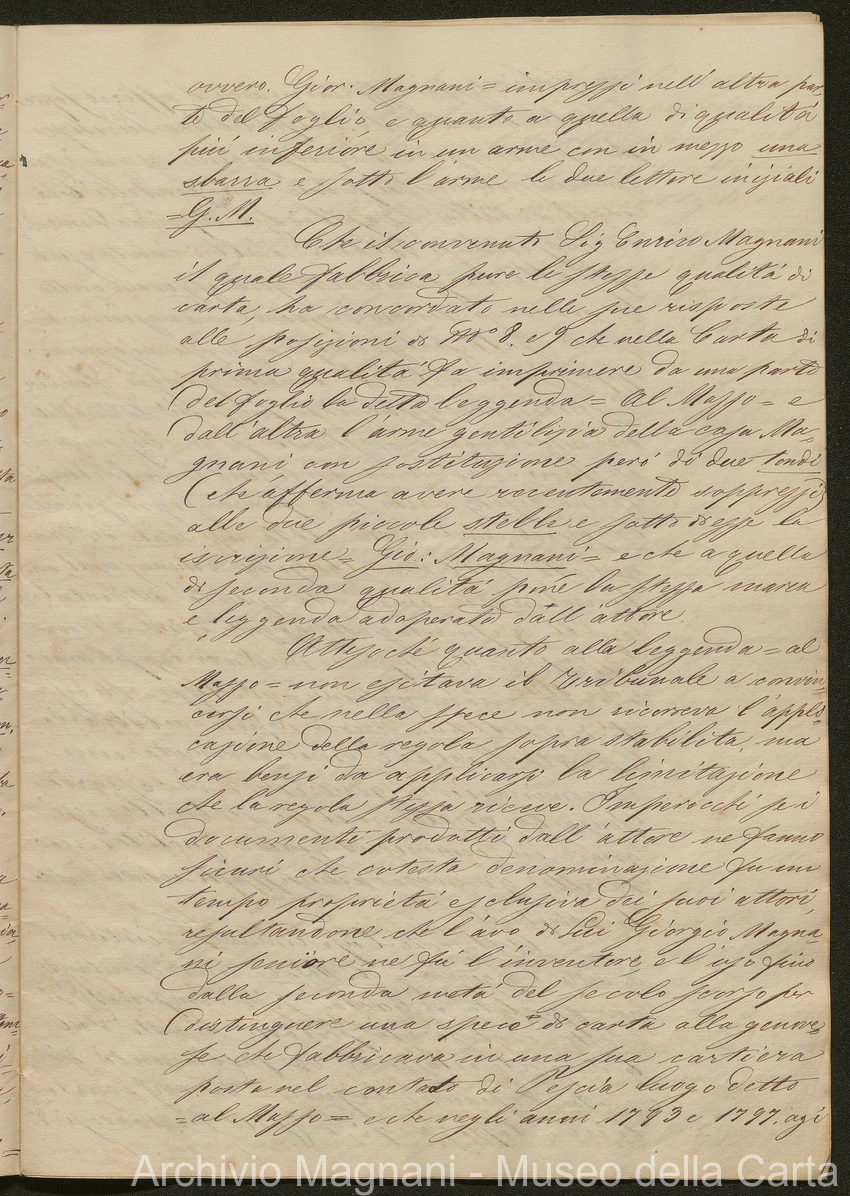 ovvero. Gior. Magnani = impressi nell'altra par=
te del foglio, e quanto a quella di qualità
più inferiore in un arme con in mezzo una
sbarra e sotto l'arme le due lettere iniziali
=G. M.
Che il convenuto Sig Enrico Magnani
il quale fabbrica pure le stesse qualità di
carta, ha concordato nelle sue risposte
alle posizioni di No 8. e 9 che nella Carta di
prima qualità fa imprimere da una parte
del foglio la detta leggenda = Al Masso = e
dall'altra l'arme gentilizia della casa Ma=
gnani con sostituzione però di due tondi
(che afferma avere recentemente soppressi)
alle due piccole stelle e sotto di esse la
iscrizione = Gio: Magnani = e che a quella
di seconda qualità pone la stessa marca
e leggenda adoperate dall'attore.
Attesochè quanto alla leggenda = al
Masso = non esitava il Tribunale a convin=
cersi che nella spece non ricorreva l'appli=
cazione della regola sopra stabilita, ma
era bensì da applicarsi la limitazione
che la regola stessa riceve. Imperocchè se i
documenti prodotti dall'attore ne fanno
sicuri che cotesta denominazione fu un
tempo proprietà esclusiva dei suoi attori,
resultandone che l'avo di Lui Giorgio Magna=
ni seniore ne fù l'inventore, e l'usò fino
dalla seconda metà del secolo scorso per
distinguere una spece di carta alla genove=
se che fabbricava in una sua cartiera
posta nel contado di Pescia luogo detto
=al Masso= e che negli anni 1793 e 1797. agì
Archivio Magnani - Museo della Carta